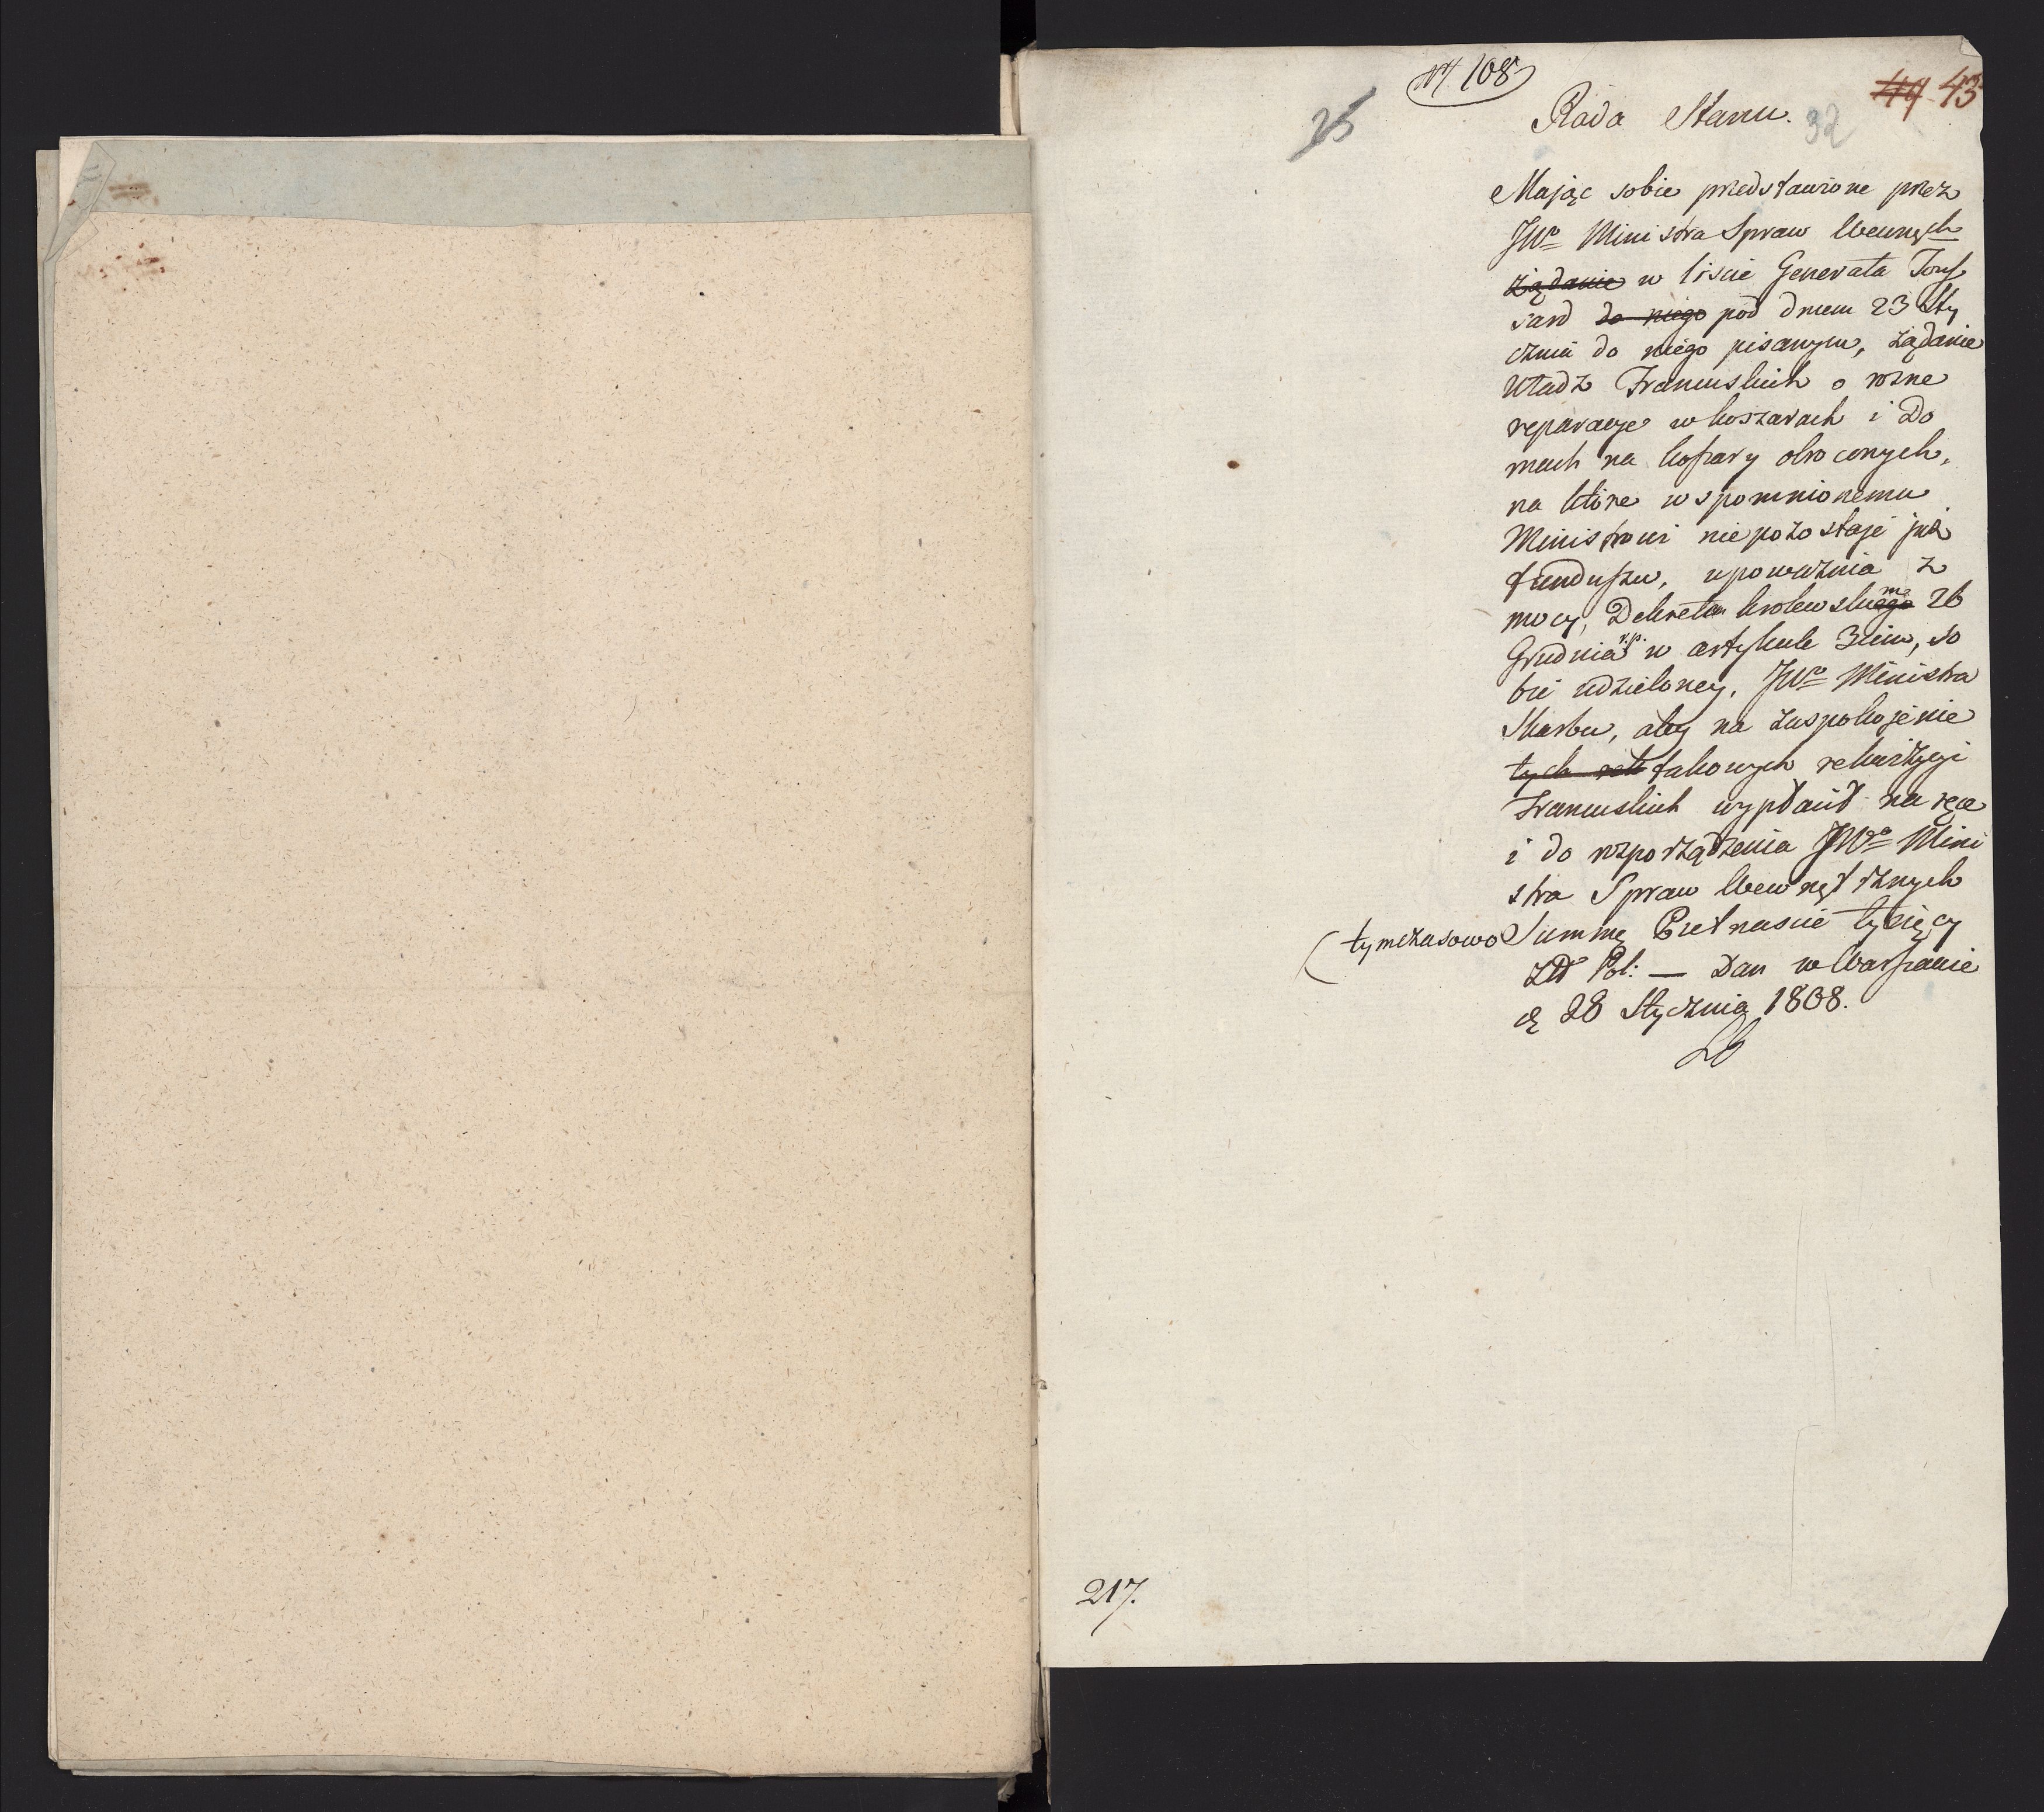 N. 108
25
Rada Stanu.
32
44 43
Mając sobie przedstawione przez
JWo Ministra Spraw Wewnych
żądanie w liscie Generała Touſ
sard do niego pod dniem 23 Sty
cznia do niego pisanym, żądanie
Władz Francuskich o rożne
reparacye w koszarach i Do
mach na koſzary obroconych,
na ktore wspomnionemu
Ministrowi niepozostaje już
funduſzu, upoważnia z
mocy, Dekretem krolewskiego m 26
Grudnia r.p. w artykule 3cim, so
bie udzieloney, JWo Ministra
Skarbu, aby na zaspokojenie
tych rek takowych rekwizycyi
Francuskich wypłacił na ręce
i do rozporządzenia JWo Mini
stra Spraw Wewnętrznych
(tymczasowo Summę Piętnascie tysięcy
Złł Pol: — Dan w Warſzawie
d. 28 Stycznia 1808.
217.